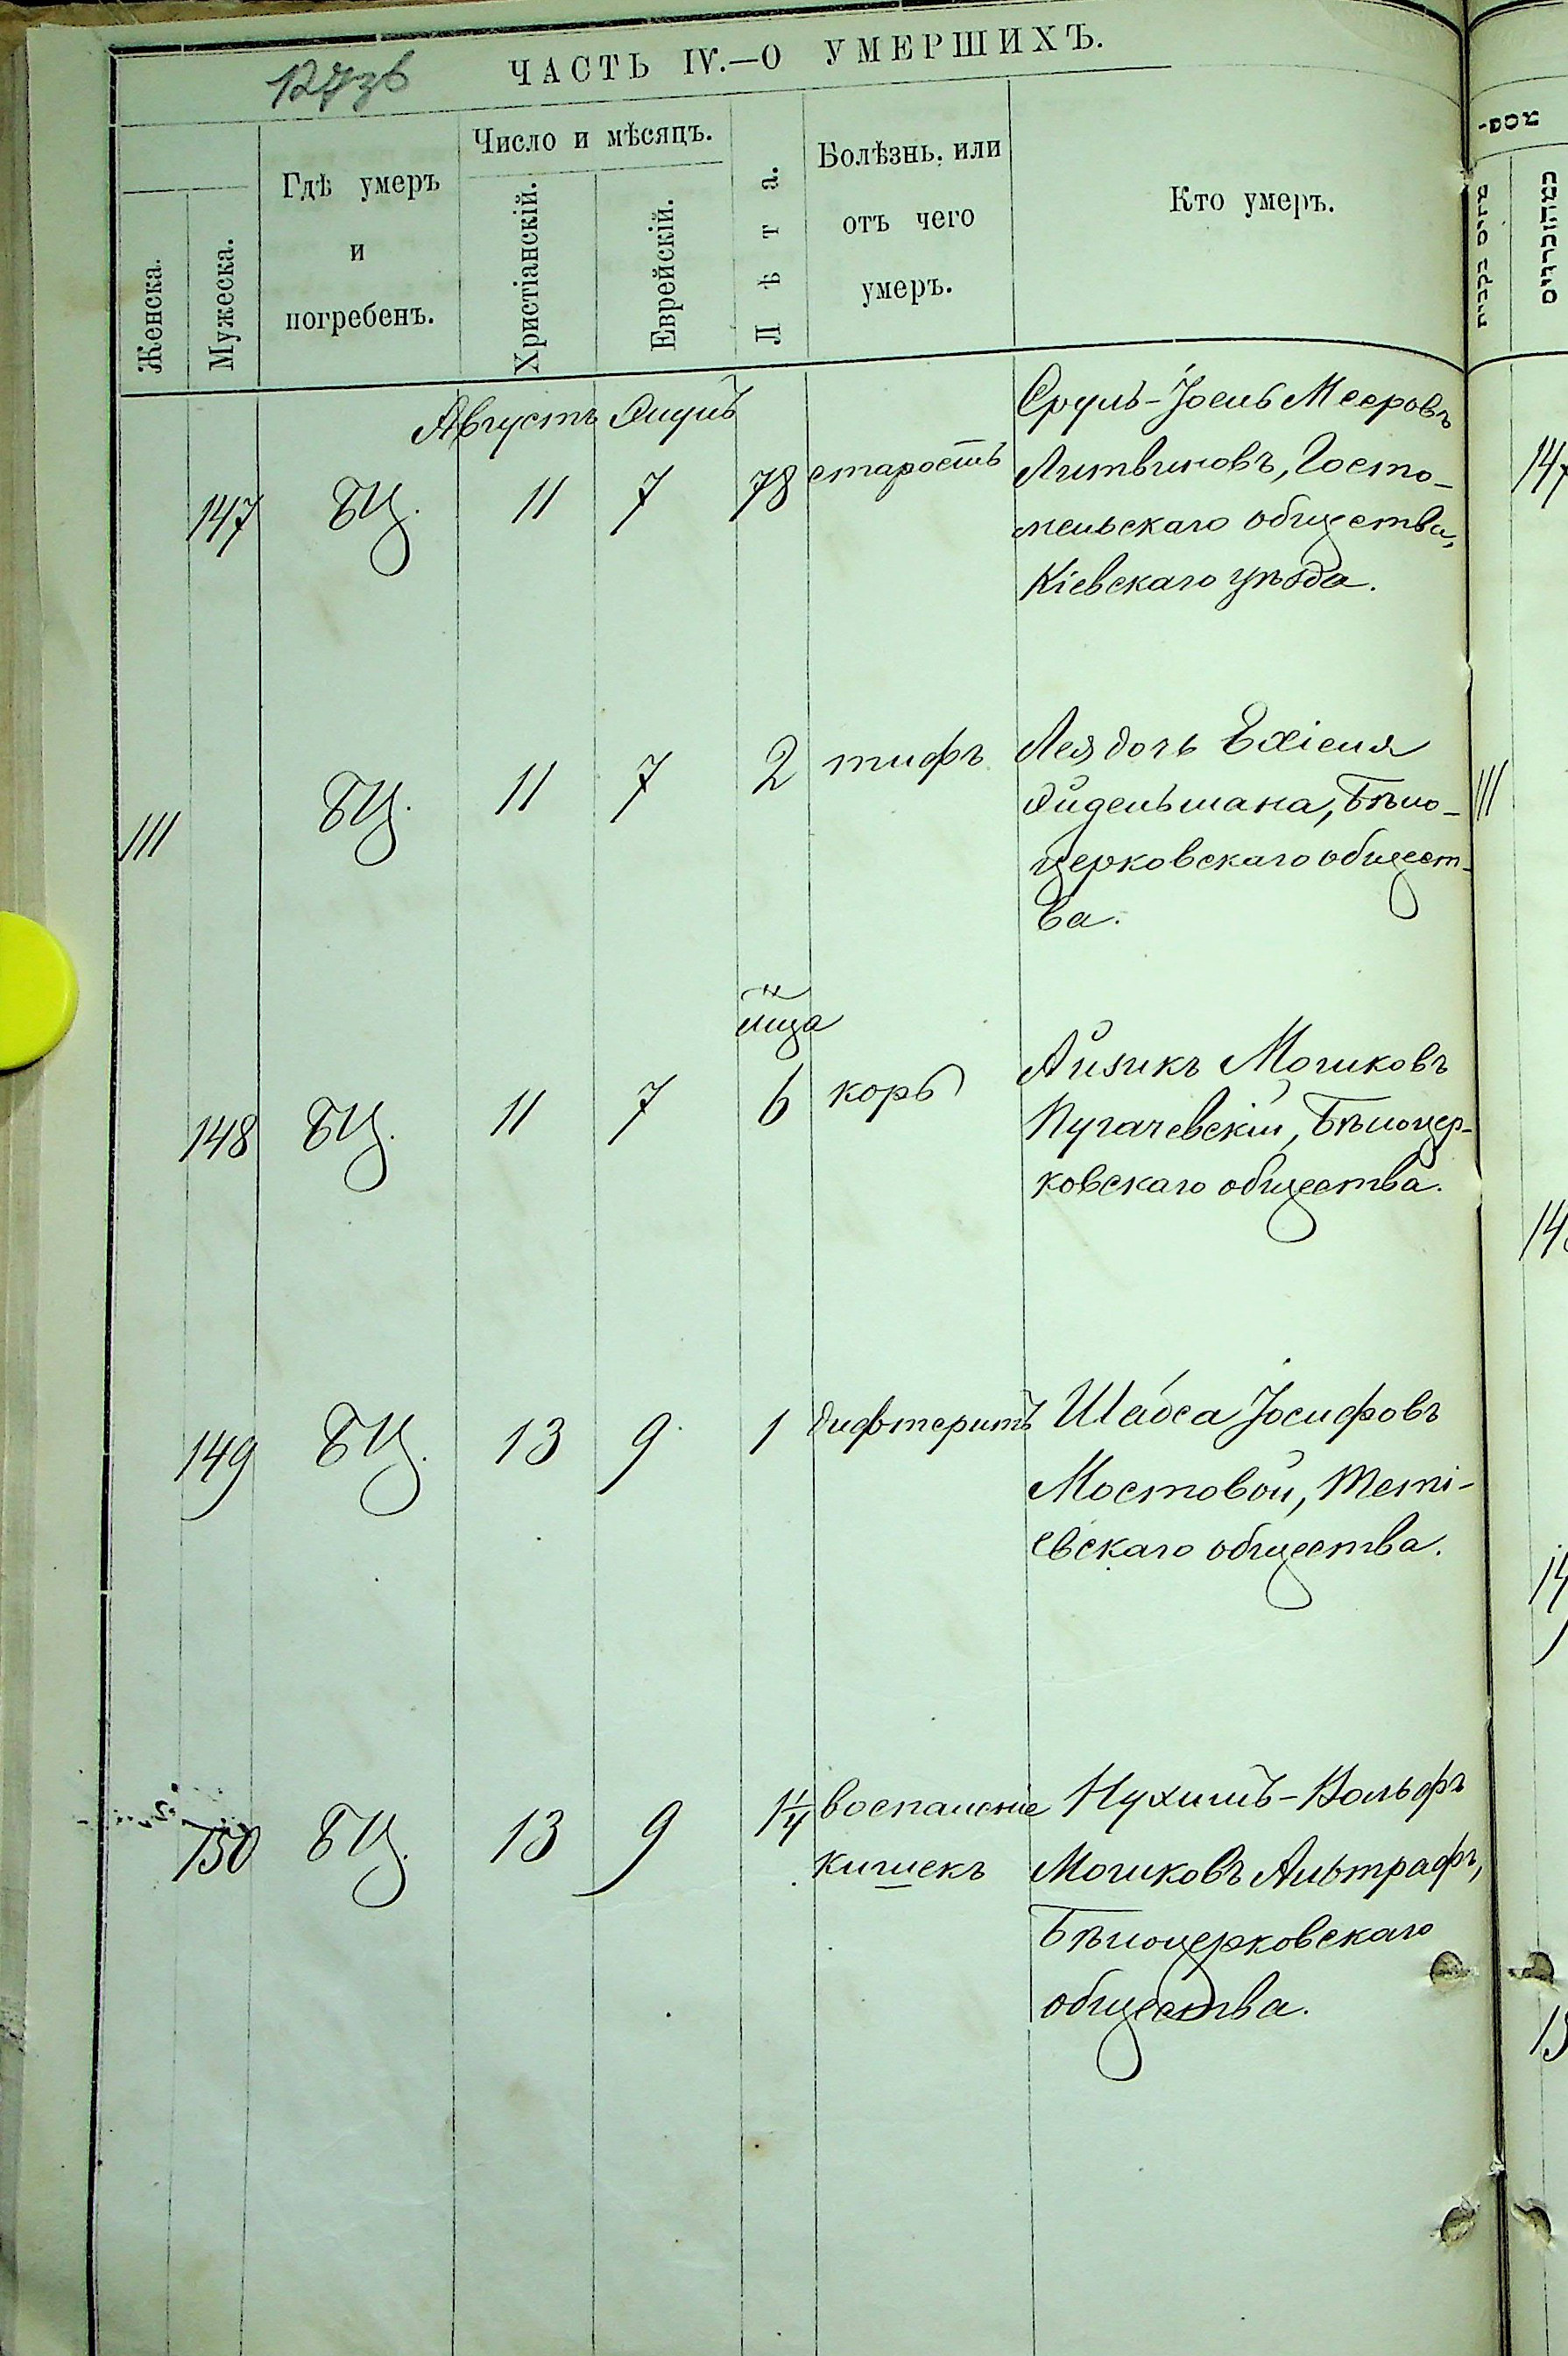 127зв
ЧАСТЬ IV.—О УМЕРШИХЪ.
Женска.
Мужеска.
Гдѣ умеръ
и
погребенъ.
Число и мѣсяцъ.
Христіанскій.
Еврейскій.
Лѣта.
Болѣзнь, или
отъ чего
умеръ.
Кто умеръ.
Августъ Элулъ
147 БЦ. 11 7 78 старость
Сруль-Іосль Мееровъ
Литвиновъ, Госто-
мельскаго общества,
Кіевскаго уѣзда.
111 БЦ. 11 7 2 тифъ
Лея дочь Ехіеля
Эйдельмана, Бѣло-
церковскаго общест-
ва.
148 БЦ. 11 7 мца 6 корь
Айзикъ Мошковъ
Пугачевскій, Бѣлоцер-
ковскаго общества.
149 БЦ. 13 9 1 дифтеритъ
Шабса Іосифовъ
Мостовой, Теті-
евскаго общества.
150 БЦ. 13 9 1 1/4 воспаленіе
кишекъ
Нухимъ-Вольфъ
Мошковъ Альтрафъ,
Бѣлоцерковскаго
общества.
147
111